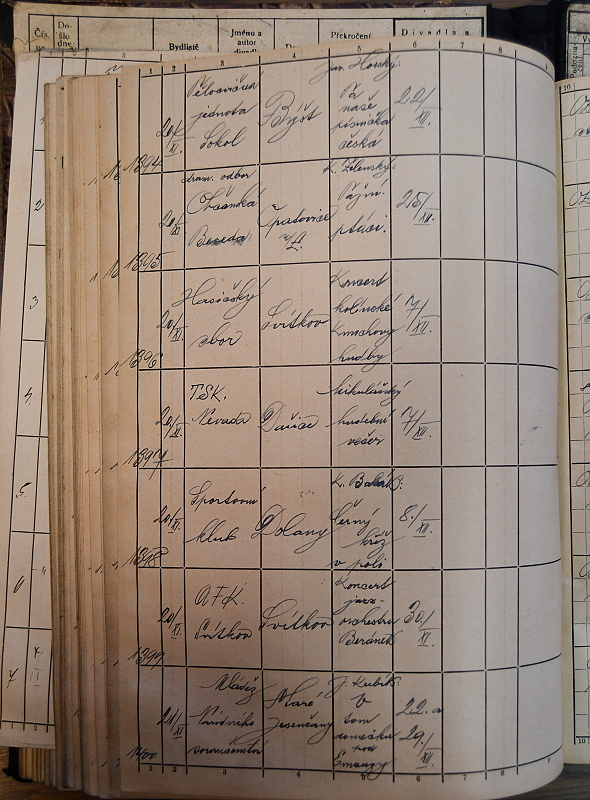 Čís.
Došlo dne:
Bydliště
Jméno a autor
Překročení
Divadla a
1 2 3 4 5 6 7 8
1394
20/XI.
Tělocvičná jednota Sokol
Býšť
Jan Horský:
Pá naše písnička česká
22/XII.
1395
20/XI.
dram. odbor
Občanská Beseda
Opatovice n/L.
K. Želenský:
Tažní ptáci.
25/XII.
1396
20/XI.
Hasičský sbor
Svítkov
Koncert kolínské Kmochovy hudby
7/XII.
1397
20/XI.
TSK.
Nevada
Dašice
Mikulášský hudební večer
7/XII.
1398
20/XI.
Sportovní klub
Dolany
K. Balák:
Černý kříž v poli
8./XII.
1399
20/XI.
AFK.
Svítkov
Svítkov
Koncert jazz-orchestru Beránek
30/XI.
1400
21/XI
Mládež Národního souručenství
Staré Jesenčany
J. Kubík:
V tom domečku pod Emauzy
22. a 29/XII.
1 2 3 4 5 6 7 8